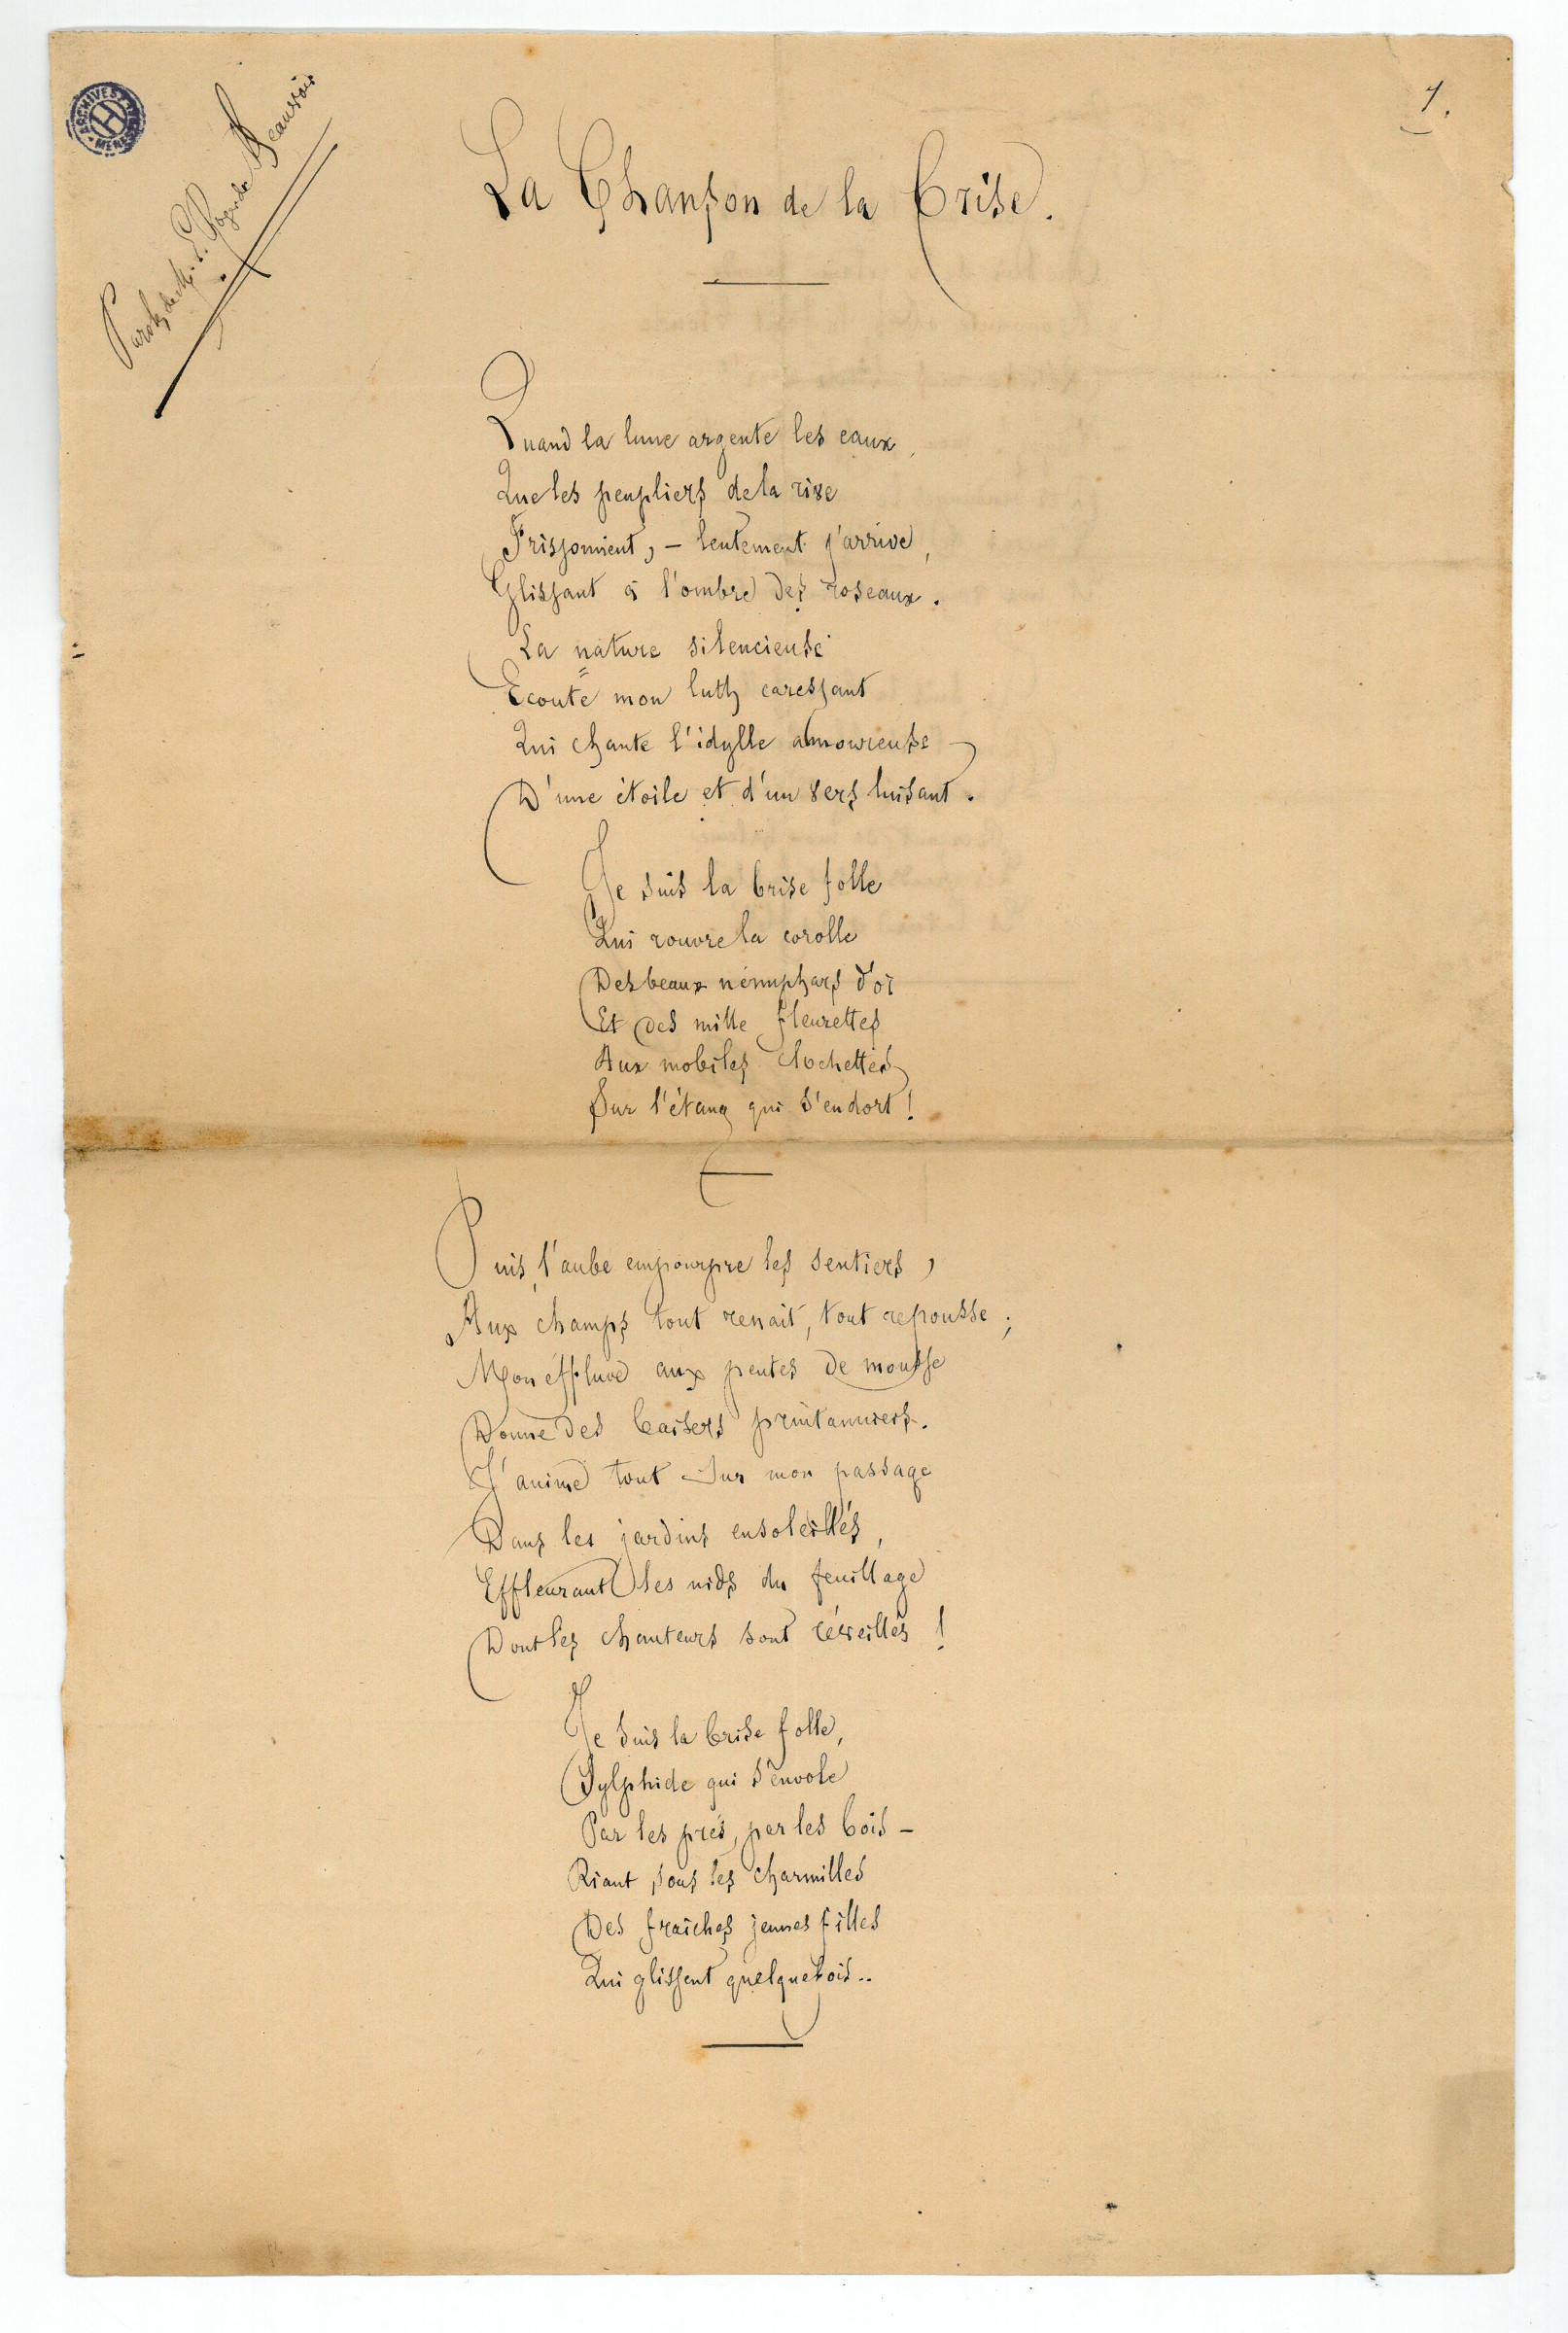 1.
ARCHIVES MENESTREL
H
Paroles de M. E. Roger de Beauvoir
La Chanson de la Brise.
Quand la lune argente les eaux,
Que les peupliers de la rive
Frissonnent, – lentement j'arrive,
Glissant à l'ombre des roseaux.
La nature silencieuse
Ecoute mon luth caressant
Qui chante l'idylle amoureuse
D'une étoile et d'un vers luisant.
Je suis la brise folle
Qui rouvre la corolle
Des beaux nénuphars d'or
Et des mille fleurettes
Aux mobiles clochettes
Sur l'étang qui s'endort !
Puis, l'aube empourpre les sentiers,
Aux champs tout renait, tout repousse ;
Mon éffluve aux pentes de mousse
Donne des baisers printanniers.
J'anime tout sur mon passage
Dans les jardins ensoleillés,
Effleurant les nids du feuillage
Dont les chanteurs sont réveillés !
Je suis la brise folle,
Sylphide qui s'envole
Par les prés, par les bois –
Riant sous les charmilles
Des fraiches jeunes filles
Qui glissent quelquefois..